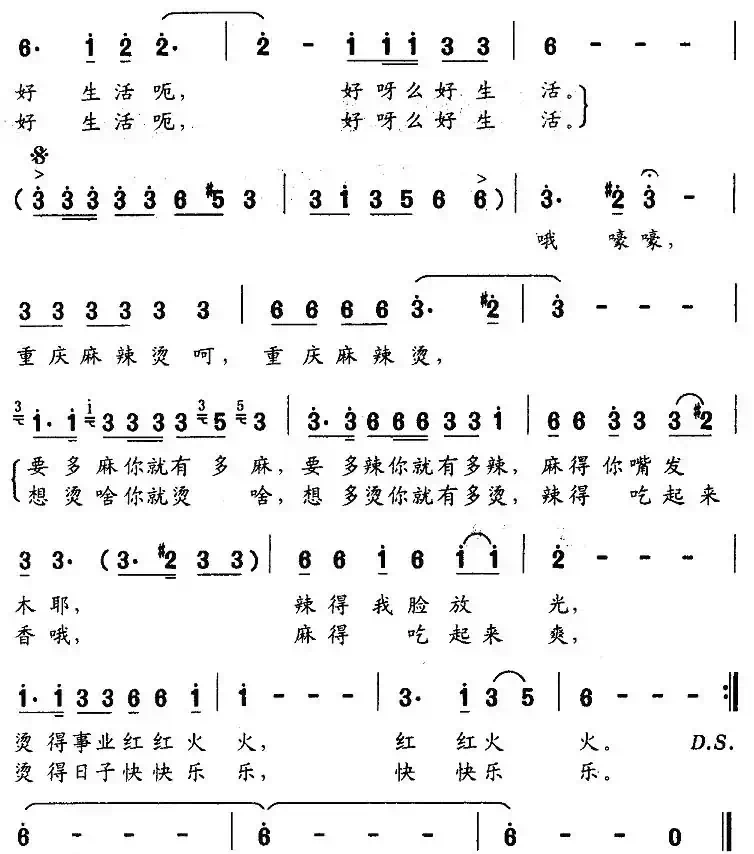 6· i 2 2· | 2 - i i i 3 3 | 6 - - - |
好 生 活 呃， 好 呀 么 好 生 活。
好 生 活 呃， 好 呀 么 好 生 活。
( 3 3 3 3 3 6 #5 3 | 3 1 3 5 6 6 ) | 3· #2 3 - |
哦 嚎 嚎，
3 3 3 3 3 3 | 6 6 6 6 3· #2 | 3 - - - |
重 庆 麻 辣 烫 呵， 重 庆 麻 辣 烫，
3 i· i i 3 3 3 3 3 5 5 3 | 3· 3 6 6 6 3 3 i | 6 6 3 3 3 #2 |
要 多 麻 你 就 有 多 麻， 要 多 辣 你 就 有 多 辣， 麻 得 你 嘴 发
想 烫 啥 你 就 烫 啥， 想 多 烫 你 就 有 多 烫， 辣 得 吃 起 来
3 3· ( 3· #2 3 3 ) | 6 6 i 6 i i | 2 - - - |
木 耶， 辣 得 我 脸 放 光，
香 哦， 麻 得 吃 起 来 爽，
i· i 3 3 6 6 i | i - - - | 3· i 3 5 | 6 - - - :||
烫 得 事 业 红 红 火 火， 红 红 火 火。 D.S.
烫 得 日 子 快 快 乐 乐， 快 快 乐 乐。
6 - - - | 6 - - - | 6 - - 0 ||